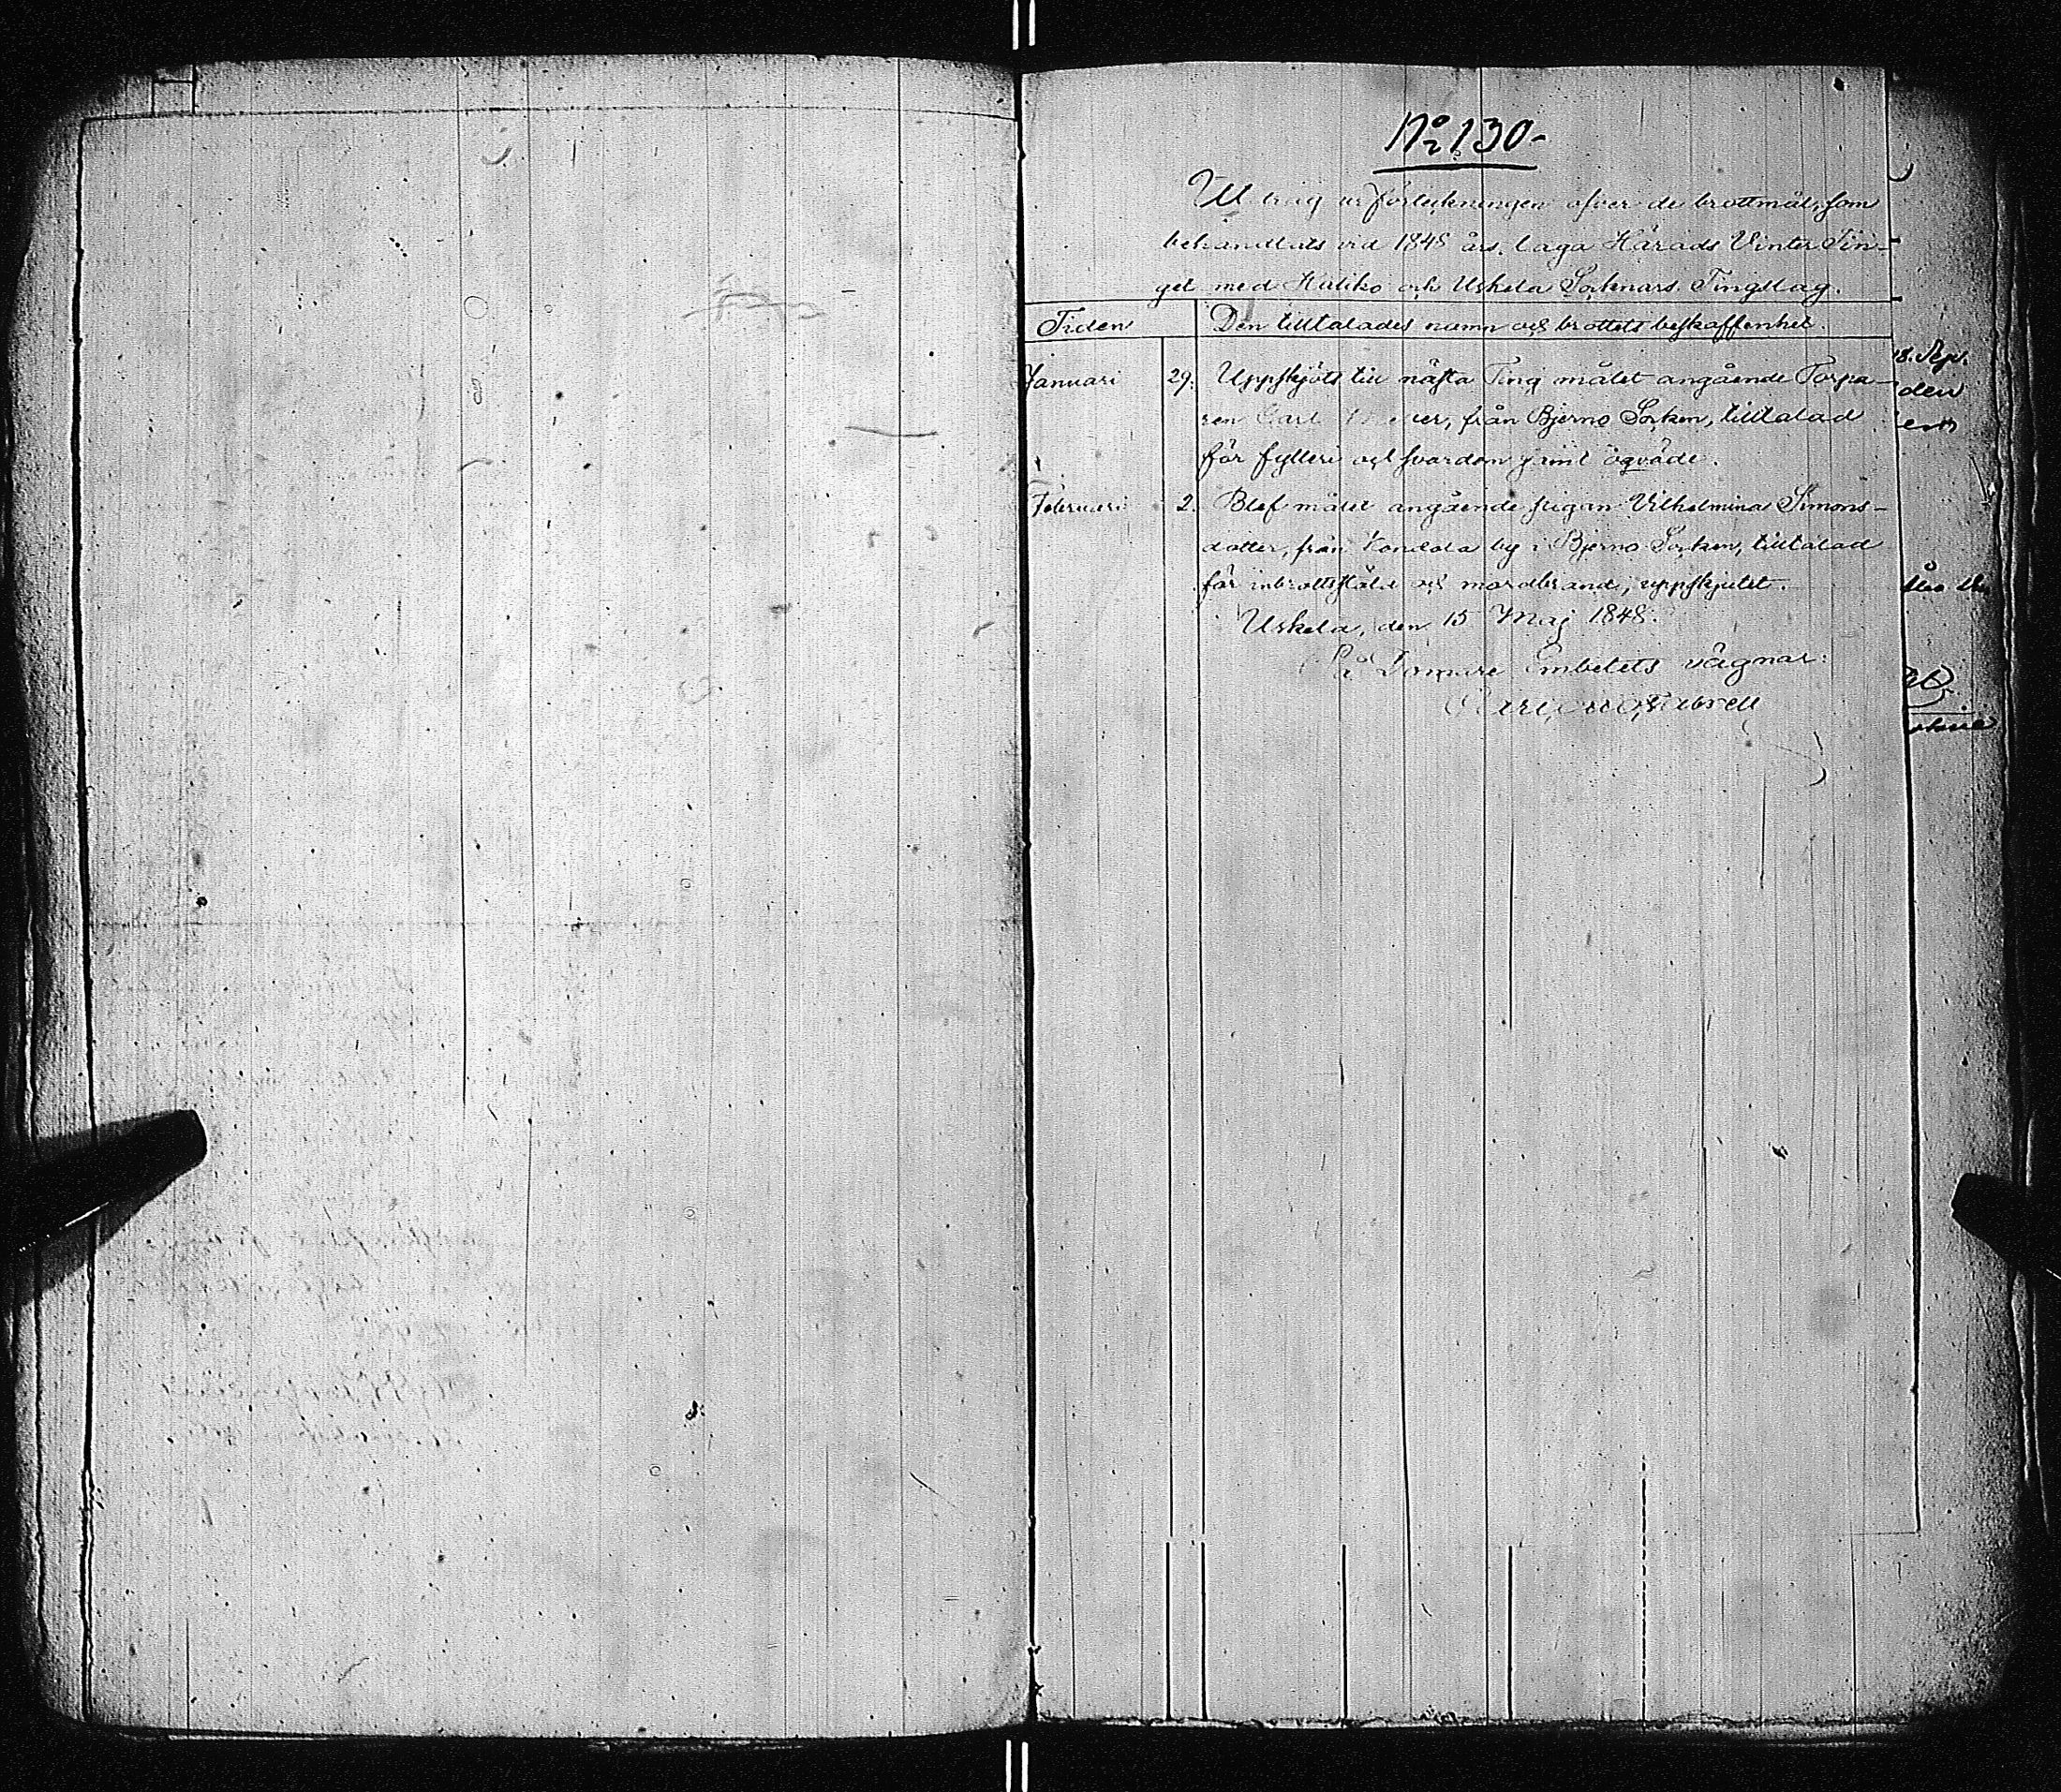 No 130-
Utdrag ur förteckningen öfver de brottmål, som
behandlats vid 1848 års laga Härads Vinter Tin-
get med Haliko och Uskela Socknars Tingslag.
Tiden
Den tilltalades namn och brottets beskaffenhet.
Januari 29. Uppsköts till nästa Ting målet angående Torpa-
ren Carl från Bjerno Socken, tilltalad
för fylleri och svordom jämt ogvåde.
Februari 2. Blef målet angående pigan Vilhelmina Simons-
dotter, från by i Bjerno Socken, tilltalad
för inbrottsstöld och mordbrand, uppskjutet.
Uskela, den 15 Maj 1848.
På Domare Embetets vägnar:
den